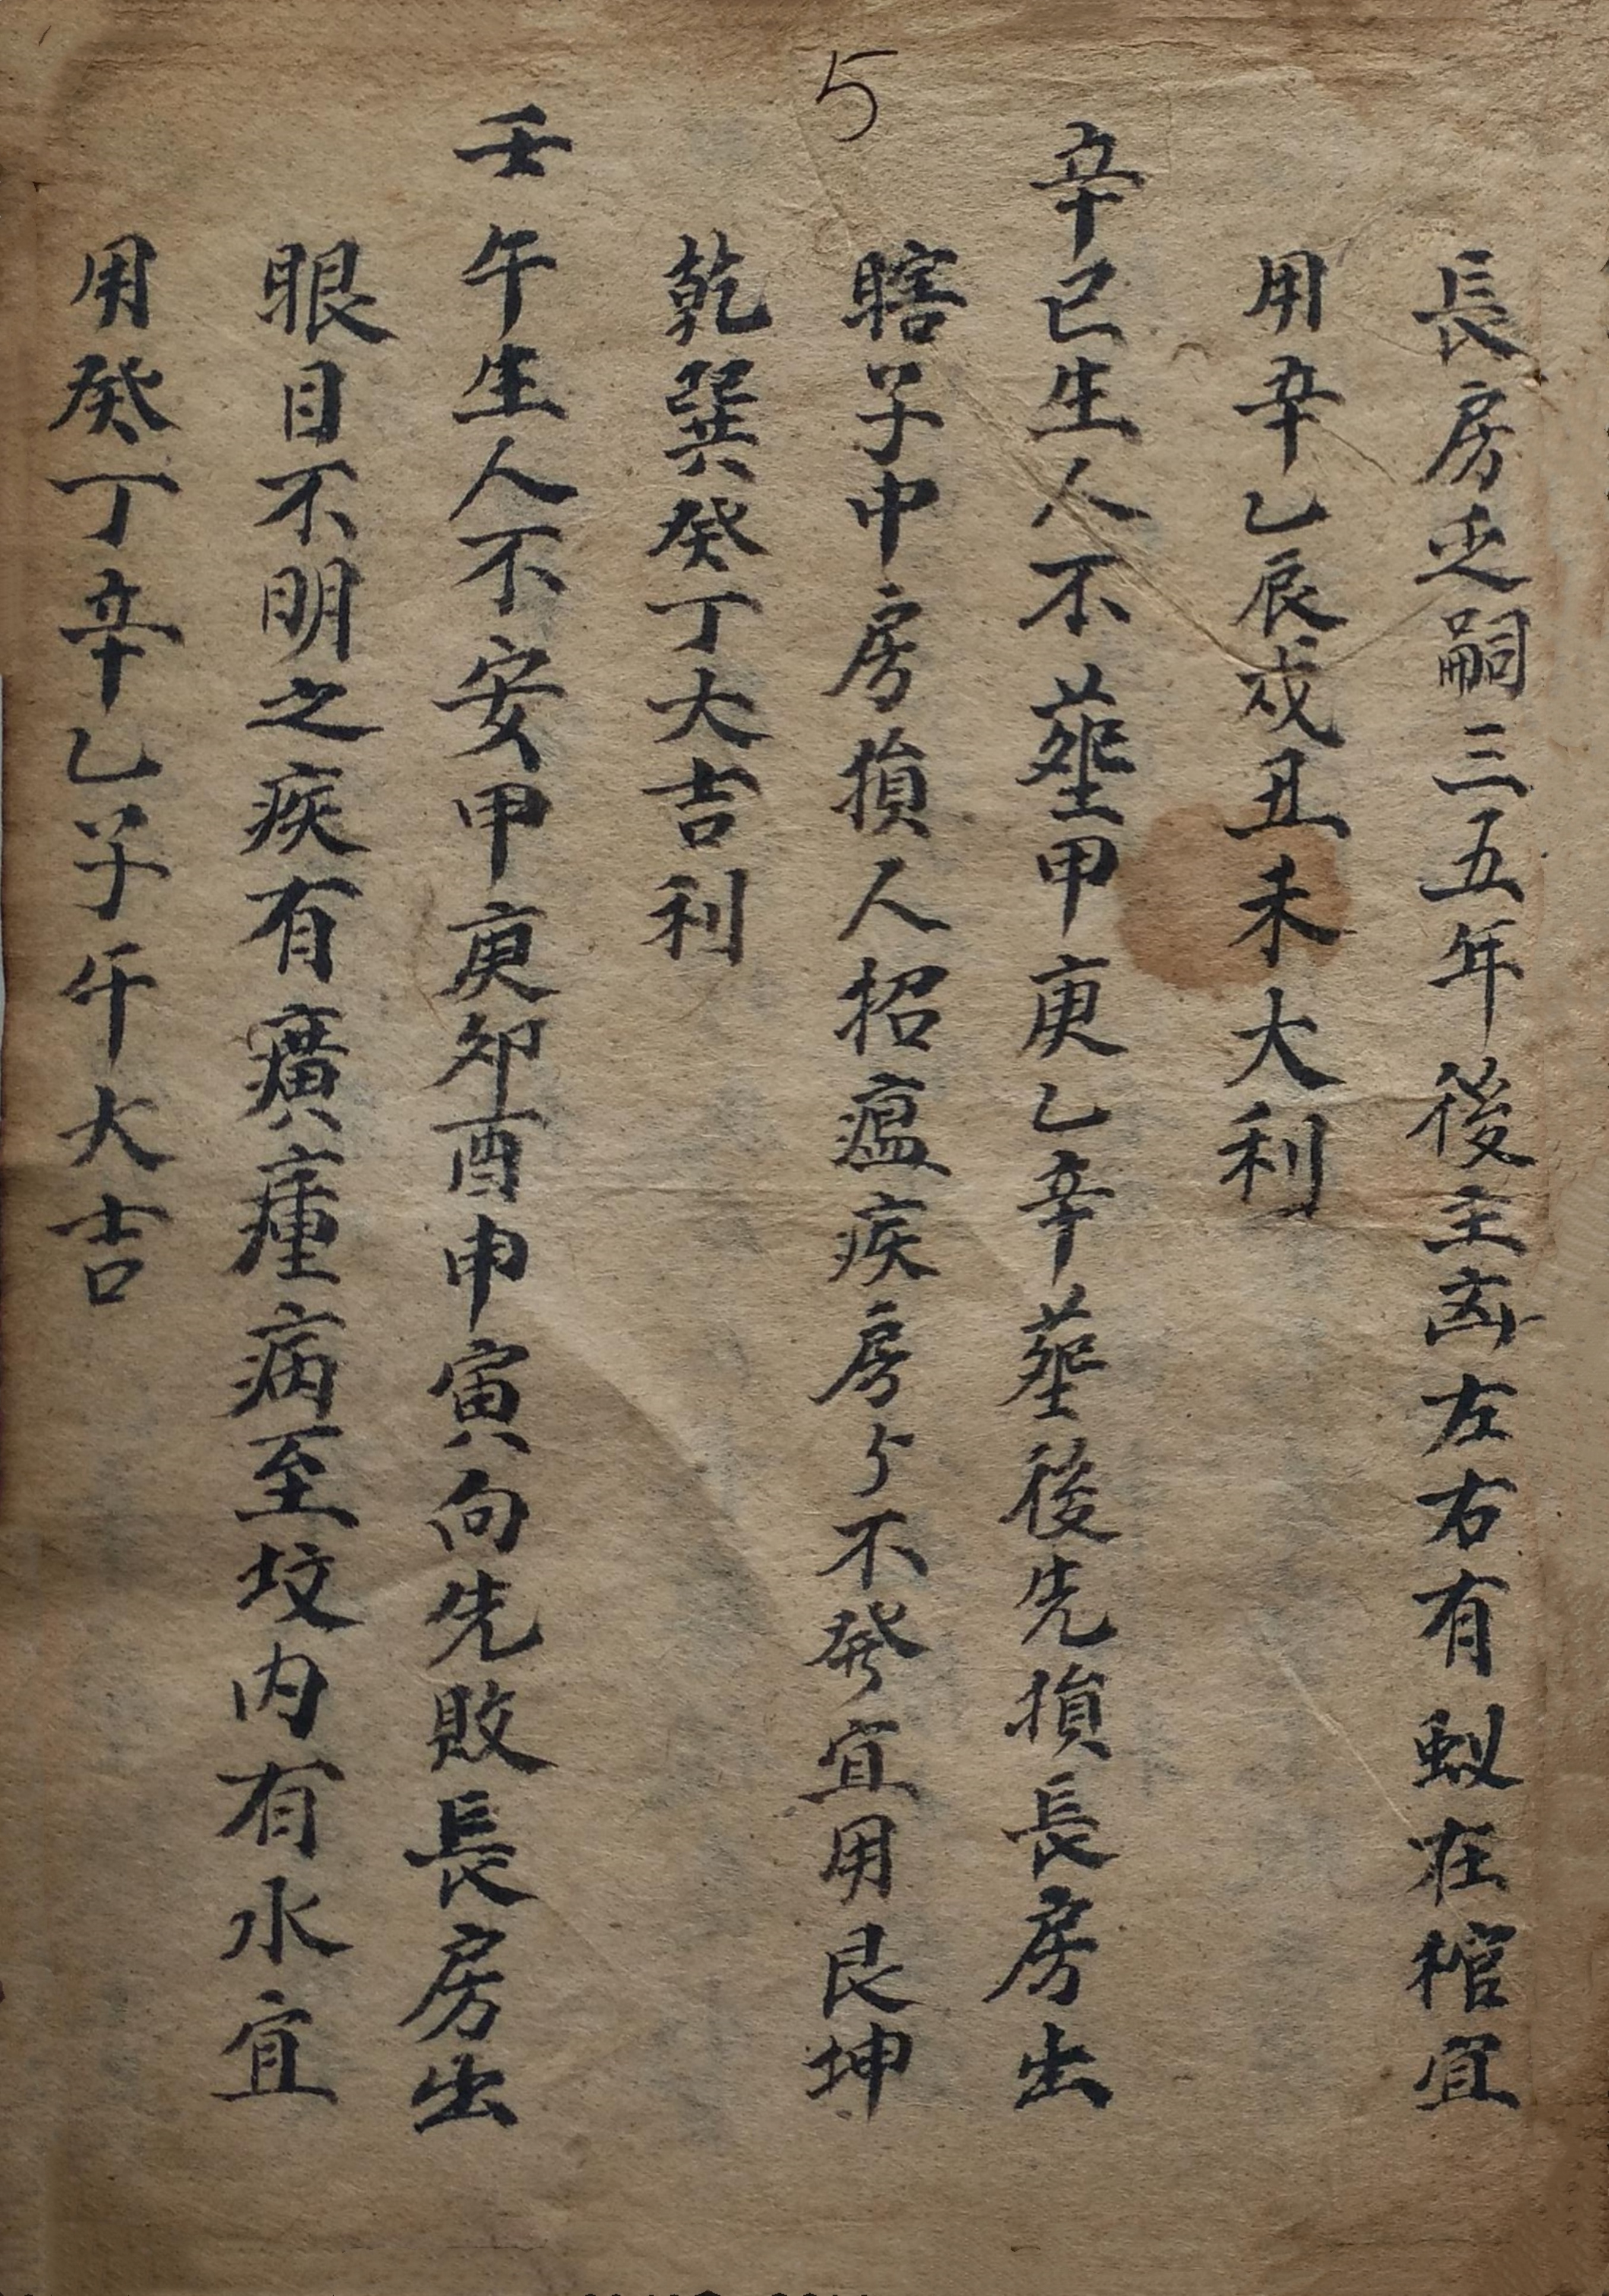 5
長房乏嗣三五年後主凶左右有蚁在棺宜
用辛乙辰戌丑未大利
辛巳生人不塟甲庚乙辛塟後先損長房出
瞎子中房損人招瘟疾房々不發宜用艮坤
乾巽癸丁大吉利
壬午生人不安甲庚卯酉申寅向先敗長房出
眼目不明之疾有癀瘇病至坟内有水宜
用癸丁辛乙子午大吉